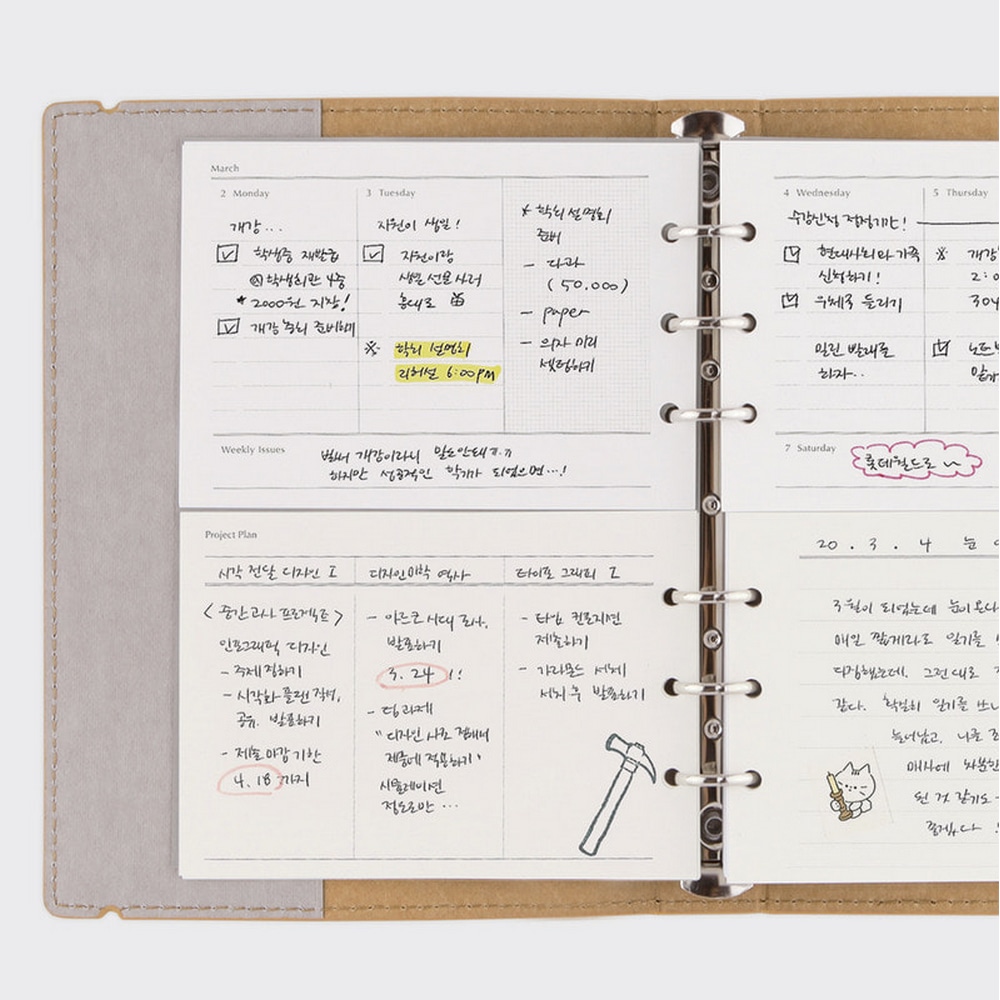 March
2 Monday
개강...
학생증 재발급
@학생회관 4층
* 2000원 지참!
개강총회 준비하기
3 Tuesday
지원이 생일!
지원이랑
생일 선물 사러
홍대로
※ 학회 설명회
리허설 6:00PM
* 학회 설명회
준비
- 다과
(50,000)
- paper
- 의자 미리
셋팅하기
Weekly Issues
벌써 개강이라니 말도안돼ㅠㅠ
하지만 성공적인 학기가 되었으면...!
Project Plan
시각 전달 디자인 I
<중간고사 프로젝트>
인포그래픽 디자인
- 주제 정하기
- 시각화 플랜 작성,
공유, 발표하기
- 제출 마감 기한
4.18 까지
디자인미학 역사
- 아르쿠 시대 조사,
발표하기
3.24 !!
- 팀과제
"디자인 사조 정해서
제품에 적용하기"
시뮬레이션
정도로만 ...
타이포그래피 I
- 타입 컨로지면
제출하기
- 가라몬드 서체
서치 후 발표하기
4 Wednesday
수강신청 정정기간!
현대사회와 가족
신청하기!
우체국 들리기
밀린 빨래도
하자..
5 Thursday
※ 개강
2:0
304
7 Saturday
롯데월드로 ~
20.3.4 눈
3월이 되었는데 눈이 온다
매일 짧게라도 일기를
다짐했는데, 그런대로
같다. 확실히 일기를 쓰니
늘어났고, 나를
매사에 차분한
된 것 같기도